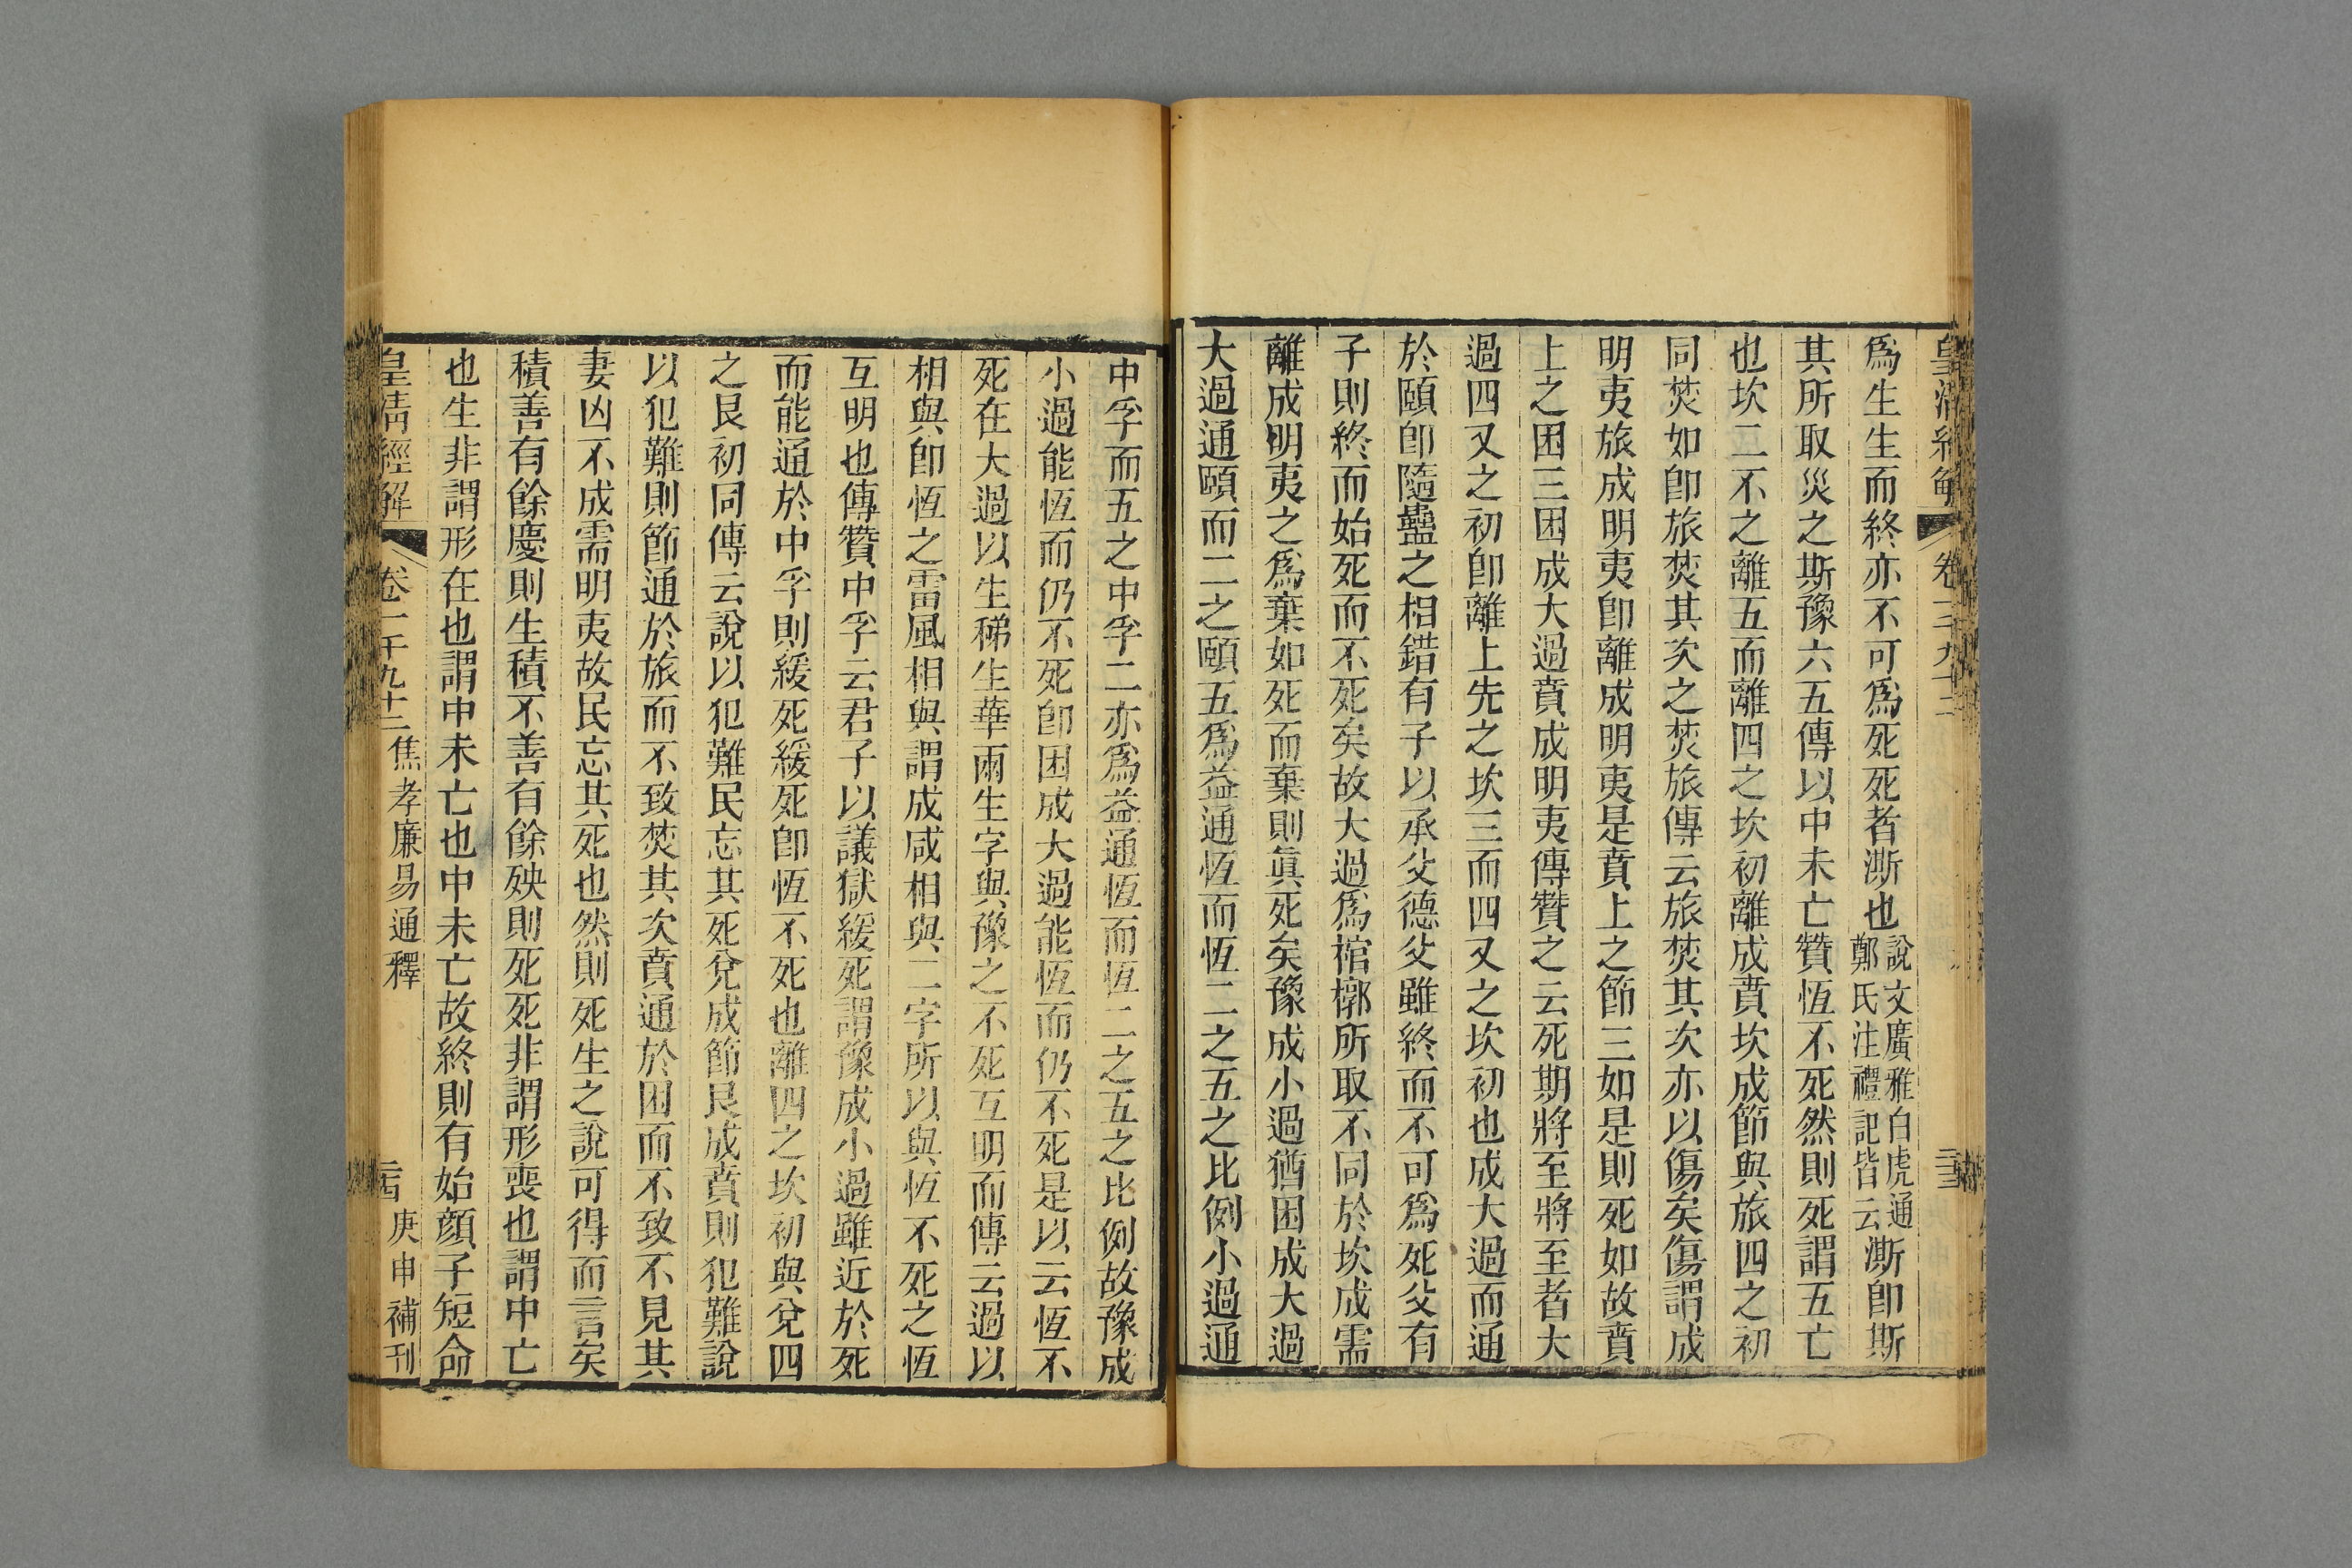 皇清經解 卷
爲生生而終亦不可爲死死者澌也說文廣雅白虎通鄭氏注禮記皆云澌卽斯
其所取災之斯豫六五傳以中未亡贊恆不死然則死謂五亡
也坎二不之離五而離四之坎初離成賁坎成節與旅四之初
同焚如卽旅焚其次之焚旅傳云旅焚其次亦以傷矣傷謂成
明夷旅成明夷卽離成明夷是賁上之節三如是則死如故賁
上之困三困成大過賁成明夷傳贊之云死期將至將至者大
過四又之初卽離上先之坎三而四又之坎初也成大過而通
於頤卽隨蠱之相錯有子以承父德父雖終而不可爲死父有
子則終而始死而不死矣故大過爲棺槨所取不同於坎成需
離成明夷之爲棄如死而棄則眞死矣豫成小過猶困成大過
大過通頤而二之頤五爲益通恆而恆二之五之比例小過通
中孚而五之中孚二亦爲益通恆而恆二之五之比例故豫成
小過能恆而仍不死卽困成大過能恆而仍不死是以云恆不
死在大過以生稊生華兩生字與豫之不死互明而傳云過以
相與卽恆之雷風相與謂成咸相與二字所以與恆不死之恆
互明也傳贊中孚云君子以議獄緩死謂豫成小過雖近於死
而能通於中孚則緩死緩死卽恆不死也離四之坎初與兌四
之艮初同傳云說以犯難民忘其死兌成節艮成賁則犯難說
以犯難則節通於旅而不致焚其次賁通於困而不致不見其
妻凶不成需明夷故民忘其死也然則死生之說可得而言矣
積善有餘慶則生積不善有餘殃則死死非謂形喪也謂中亡
也生非謂形在也謂中未亡也中未亡故終則有始顏子短命
皇清經解 卷一千九十二 焦孝廉易通釋 二十四 庚申補刊